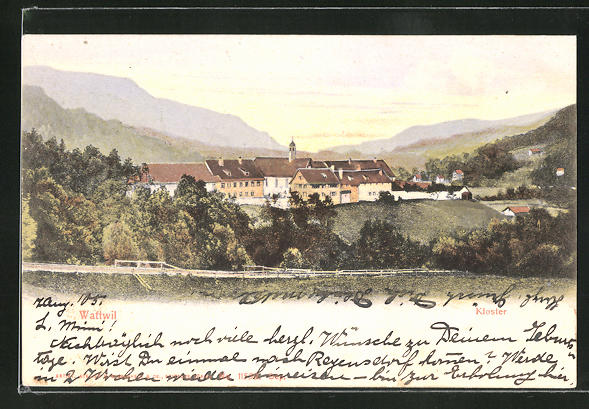 Wattwil
Kloster
L. Mimi!
Nachträglich noch viele herzl. Wünsche zu Deinem Geburts-
tage. Wirst Du einmal nach Regensdorf kommen? Werde
in 2 Wochen wieder heimreisen – bin zur Erholung hier.